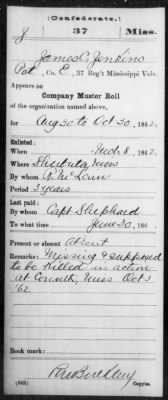 (Confederate.)
J 37 Miss.
James C. Jenkins
Pvt, Co. E, 37 Reg't Mississippi Vols.
Appears on
Company Muster Roll
of the organization named above,
for Aug 30 to Oct 30, 1862.
Enlisted:
When Mch 8, 1862.
Where Shubuta Miss
By whom McLain
Period 3 years
Last paid:
By whom Capt Shephard
To what time June 30, 186
Present or absent Absent
Remarks: Missing & supposed
to be killed in action
at Corinth, Miss Oct 3
'62
Book mark:
(642) Copyist.